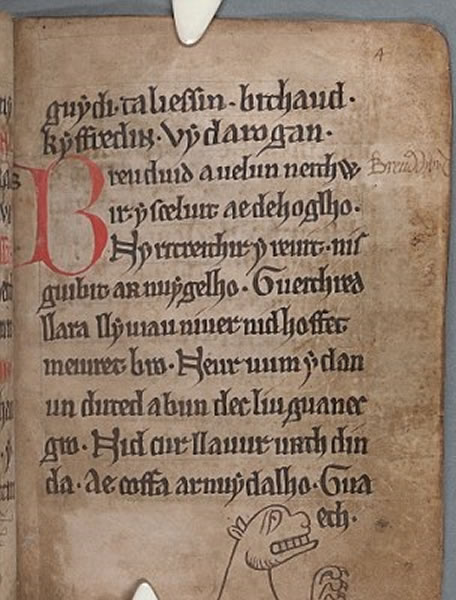 guydi. taliessin. bithaud.
kyffredin. vy darogan.
4
Breuduid auelun neithw
ir. ysceluit aedehoglho.
Ny ritreithir y reuit. nis
guibit arnuygelho. Gueithred
llara llyuiau niuer nidhoffet
meuret bro. Neur uum ydan
un duted abun dec liu guanec
gro. Nid cur llauur urth din
da. Ae coffa arnuydalho. Gua
eth.